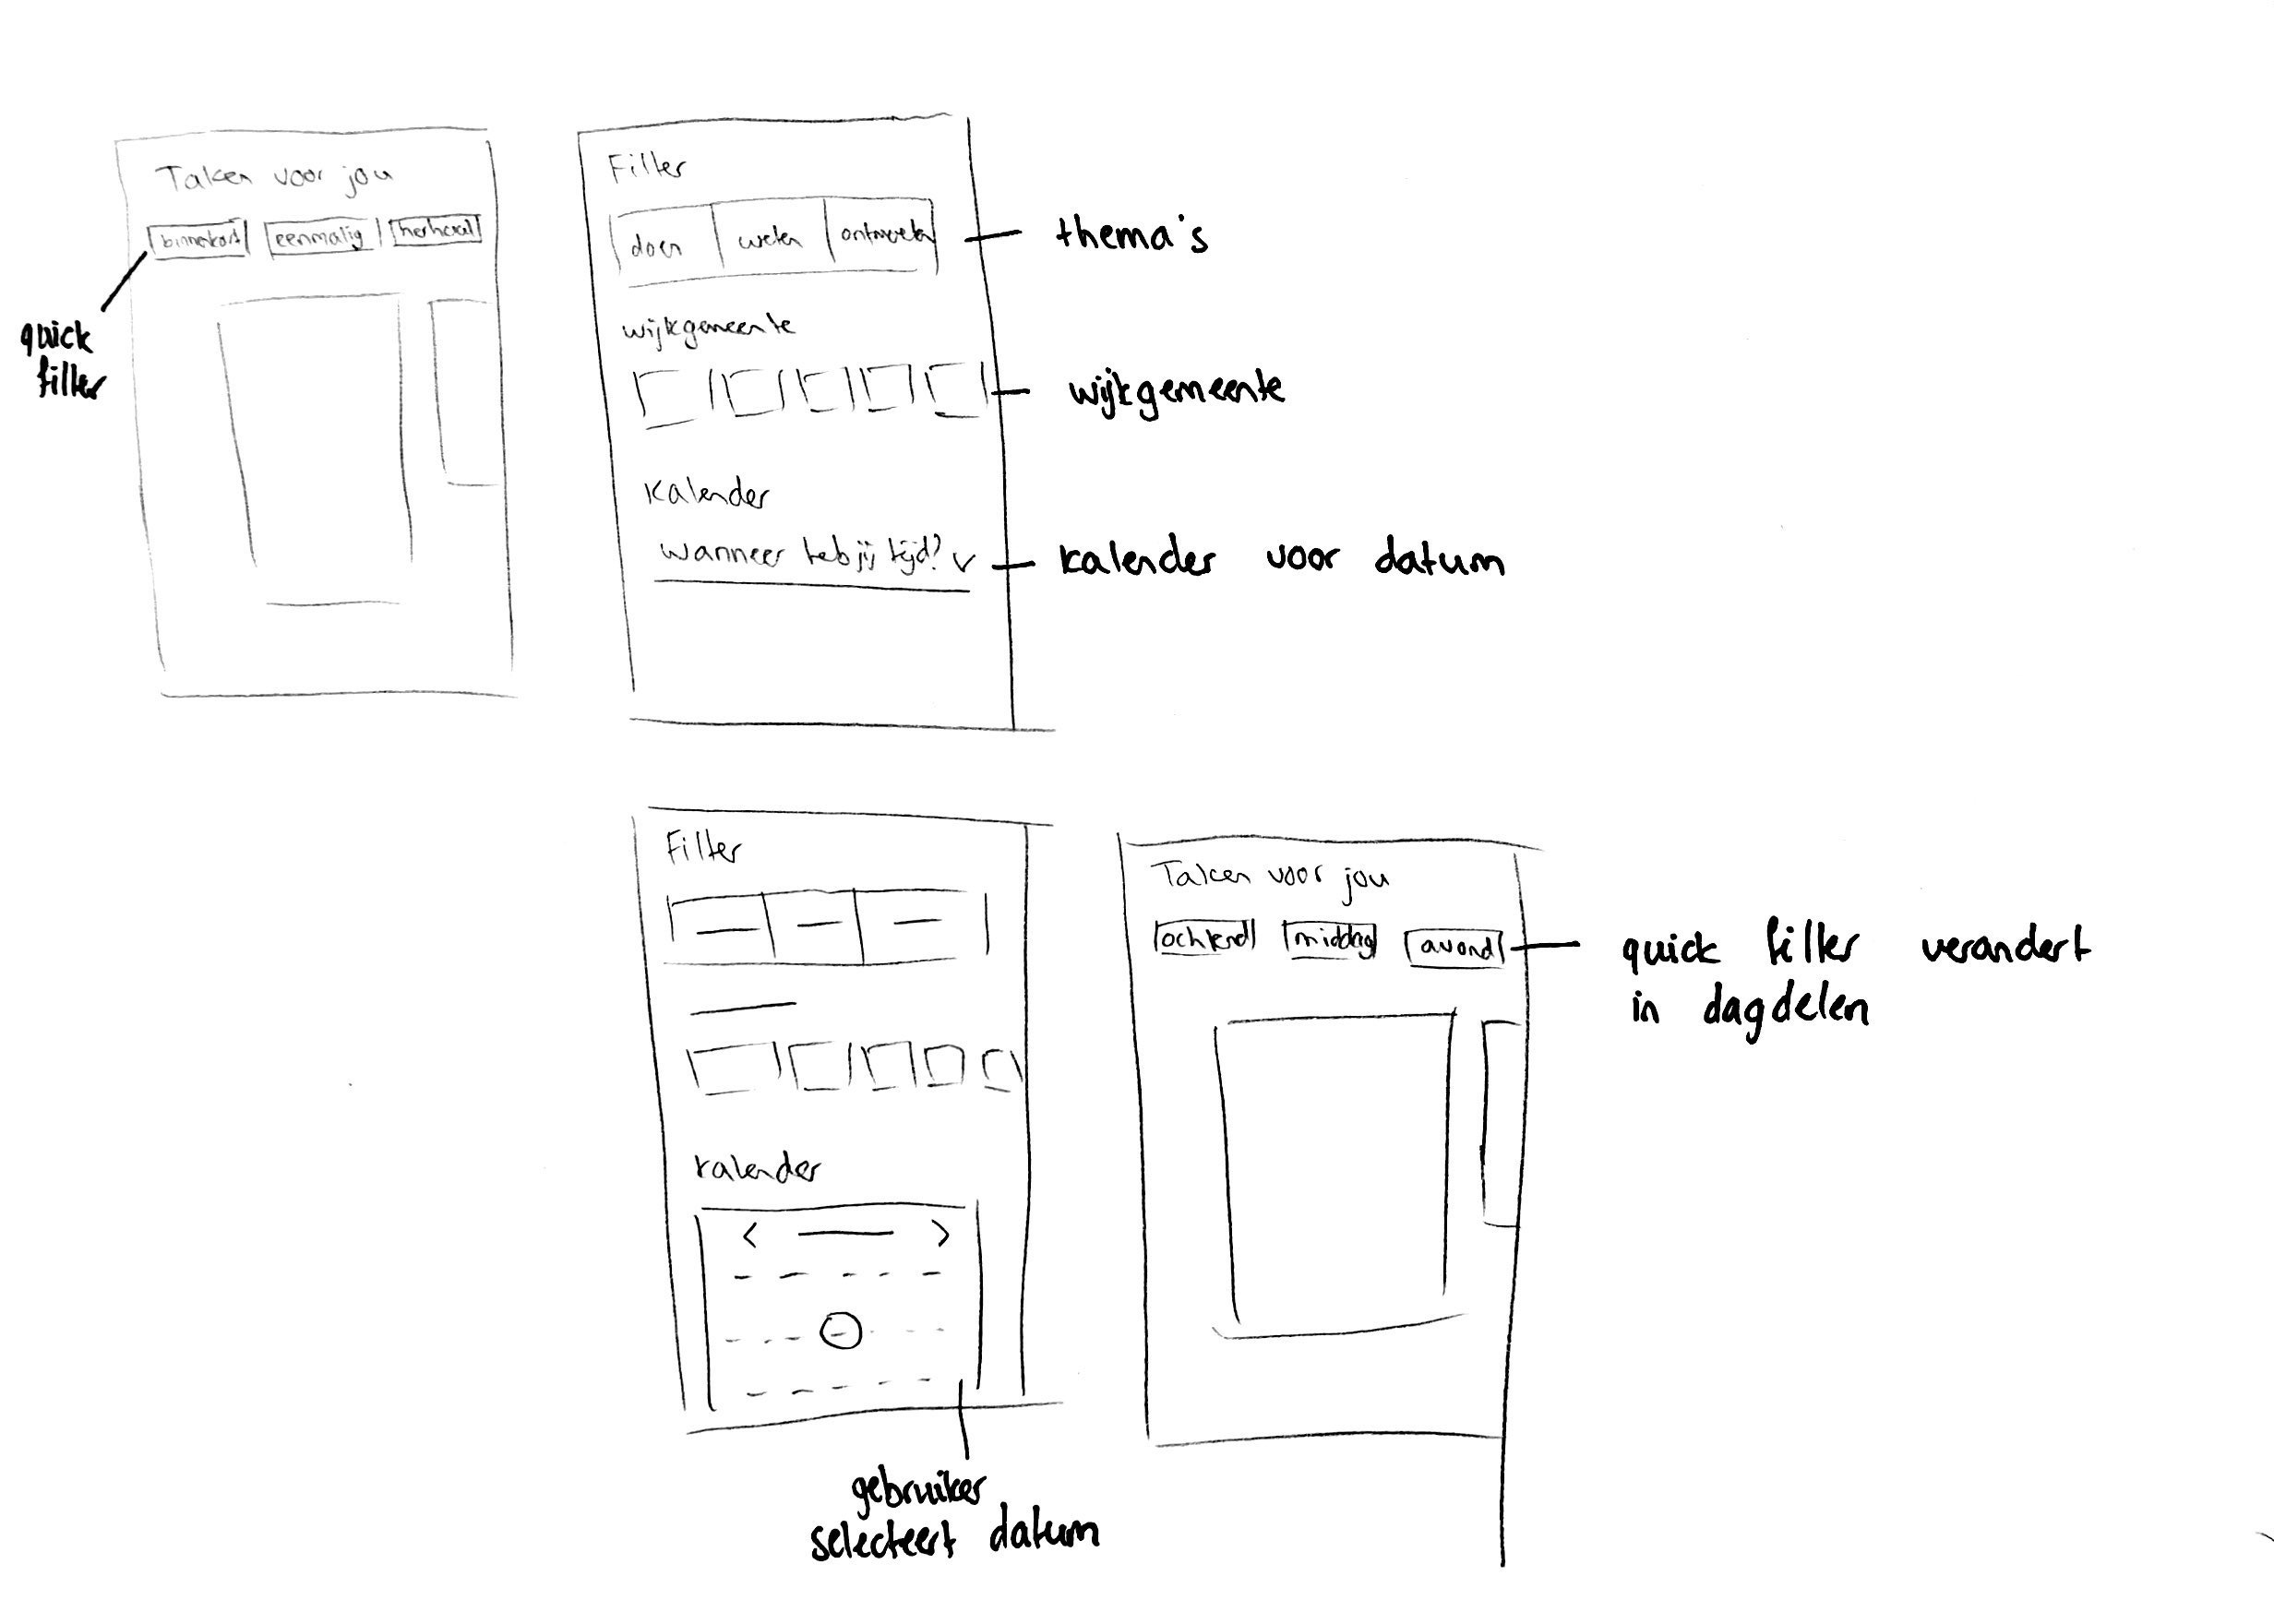 Taken voor jou
binnekort eenmalig herhaal
quick
filter
Filter
doen weten ontmoeten
thema's
wijkgemeente
wijkgemeente
Kalender
wanneer heb jij tijd?
kalender voor datum
Filter
kalender
gebruiker
selecteert datum
Taken voor jou
ochtend middag avond
quick filter verandert
in dagdelen